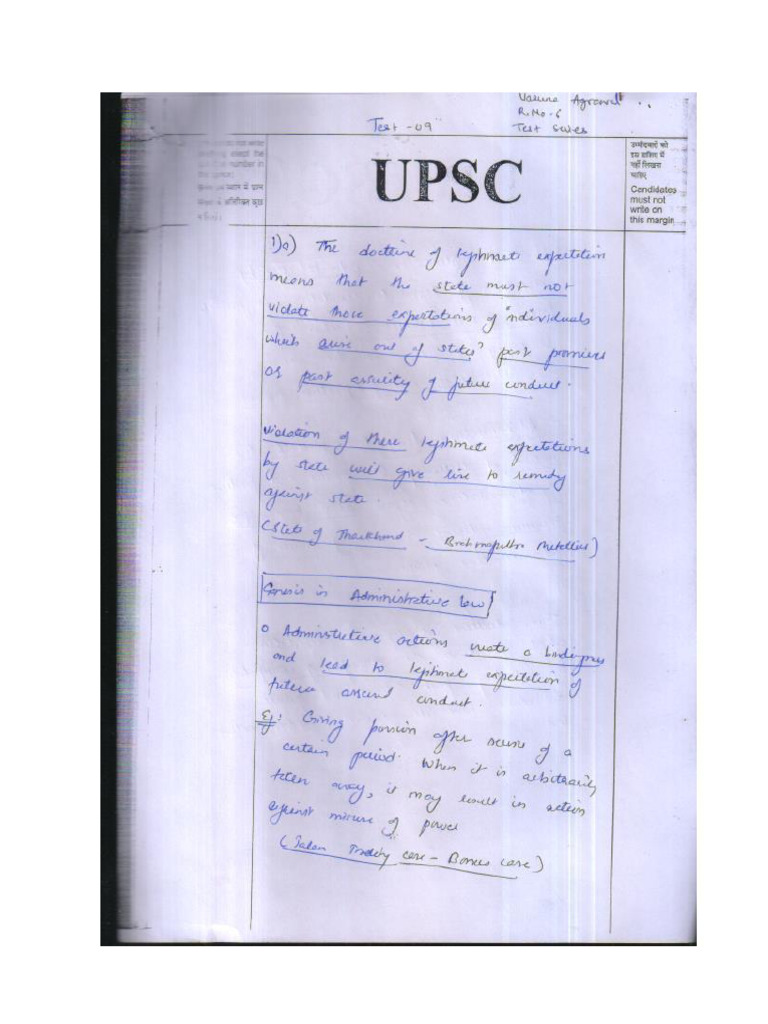 Agrawal
R.No-6
Test -09
Test Series
उम्मीदवारों को
इस हाशिए में
नहीं लिखना
चाहिए
Candidates
must not
write on
this margin
UPSC
1)a) The doctrine of legitimate expectation
means that the state must not
violate those expectations of individuals
which arise out of states' past promises
or past assurity of future conduct.
violation of these legitimate expectations
by state will give line to remedy
against state.
(State of Jharkhand - Brahmaputra Metallics)
Genesis in Administrative law
o Administrative actions create a
and lead to legitimate expectation of
future assured conduct.
Eg: Giving pension after service of a
certain period. When it is arbitrarily
taken away, it may result in action
against misuse of power
( case - case)